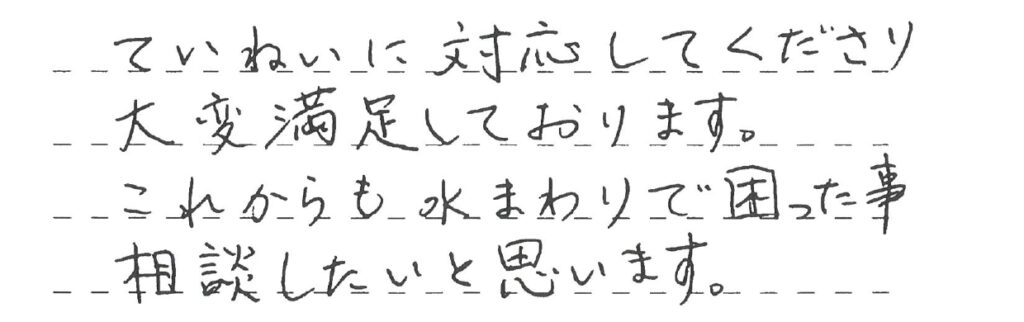 ていねいに対応してくださり
大変満足しております。
これからも水まわりで困った事
相談したいと思います。